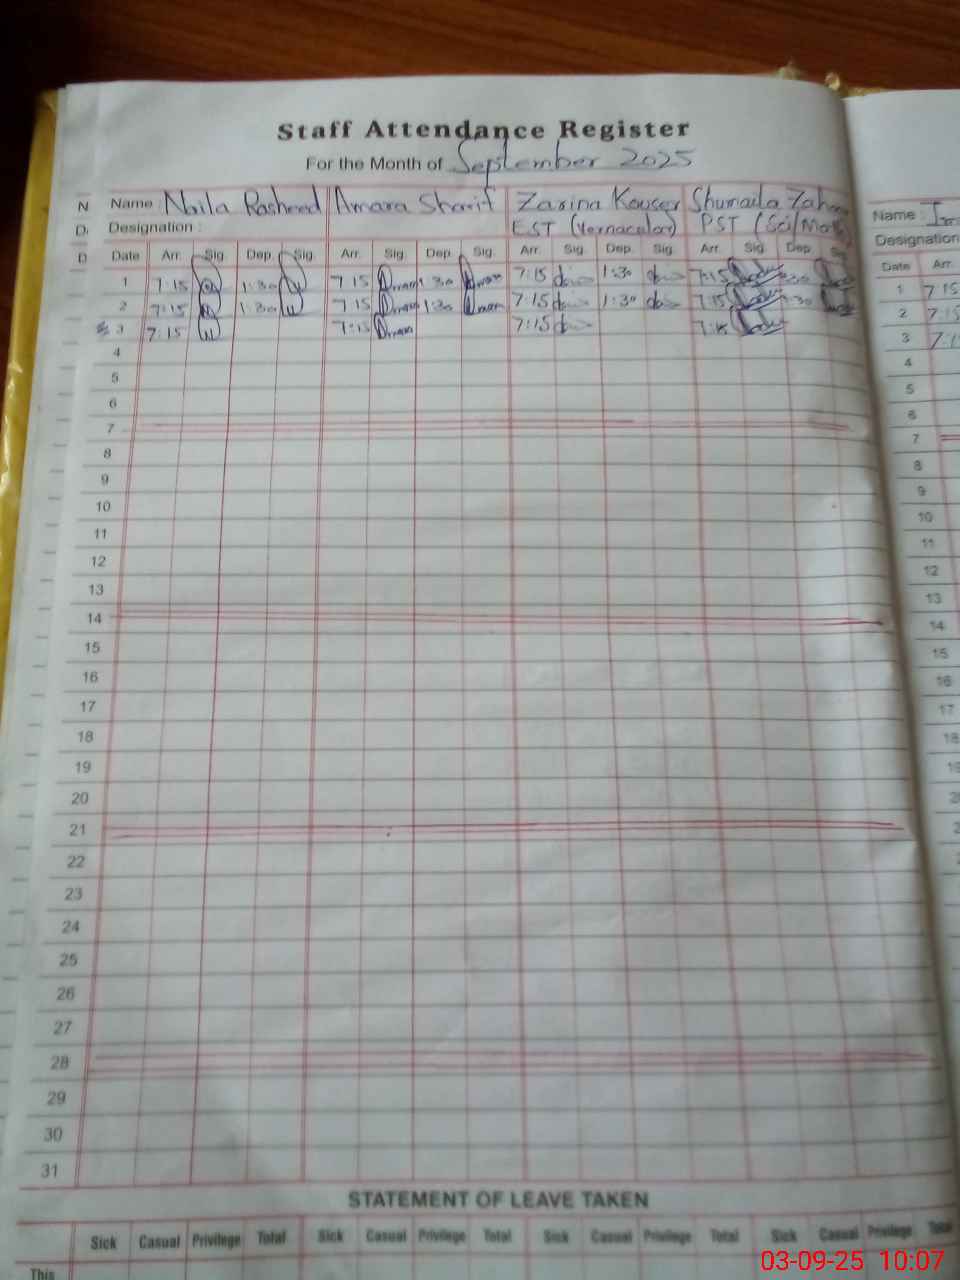 Staff Attendance Register
For the Month of September 2025
N Name : Naila Rasheed Amara Sharif Zarina Kouser Shumaila Zah Name :
D Designation : EST (Vernacular) PST (Sci/Math) Designation
D Date Arr. Sig. Dep. Sig. Arr. Sig. Dep. Sig. Arr. Sig. Dep. Sig. Arr. Sig. Dep. Sig. Date Arr.
1 7:15 1:30 7 15 1:30 7:15 1:30 7:15 1 7 15
2 7:15 1:30 7 15 1:30 7:15 1:30 7:15 1:30 2 7:15
3 7:15 7:15 7:15 7:15 3
4 4
5 5
6 6
7 7
8 8
9 9
10 10
11 11
12 12
13 13
14 14
15 15
16 16
17 17
18 18
19
20
21
22
23
24
25
26
27
28
29
30
31
STATEMENT OF LEAVE TAKEN
Sick Casual Privilege Total Sick Casual Privilege Total Sick Casual Privilege Total Sick Casual Privilege Total
This
03-09-25 10:07